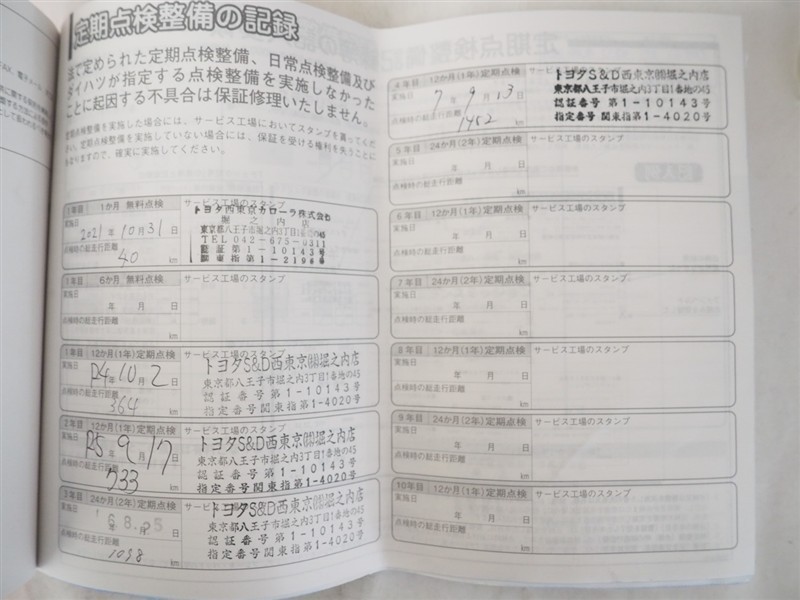 定期点検整備の記録
法で定められた定期点検整備、日常点検整備及び
ダイハツが指定する点検整備を実施しなかった
ことに起因する不具合は保証修理いたしません。
定期点検整備を実施した場合には、サービス工場においてスタンプを貰ってくだ
さい。定期点検整備を実施していない場合には、保証を受ける権利を失うことに
なりますので、確実に実施してください。
1年目 1か月 無料点検 サービス工場のスタンプ
実施日
2021年10月31日
点検時の総走行距離
40 km
トヨタ西東京カローラ株式会社
堀之内店
TEL 042-675-0311
認証第1-10143号
1年目 6か月 無料点検 サービス工場のスタンプ
実施日
年 月 日
点検時の総走行距離
km
1年目 12か月(1年)定期点検 サービス工場のスタンプ
実施日
R4年10月2日
点検時の総走行距離
364 km
トヨタS&D西東京㈱堀之内店
東京都八王子市堀之内3丁目1番地の45
認証番号 第1-10143号
指定番号 関東指第1-4020号
2年目 12か月(1年)定期点検 サービス工場のスタンプ
実施日
R5 9 17日
点検時の総走行距離
733 km
トヨタS&D西東京㈱堀之内店
東京都八王子市堀之内3丁目1番地の45
認証番号 第1-10143号
指定番号 関東指第1-4020号
3年目 24か月(2年)定期点検 サービス工場のスタンプ
実施日
点検時の総走行距離
1098 km
トヨタS&D西東京㈱堀之内店
東京都八王子市堀之内3丁目1番地の45
認証番号 第1-10143号
指定番号 関東指第1-4020号
4年目 12か月(1年)定期点検 サービス工場のスタンプ
実施日
7年9月13日
点検時の総走行距離
1452 km
トヨタS&D西東京㈱堀之内店
東京都八王子市堀之内3丁目1番地の45
認証番号 第1-10143号
指定番号 関東指第1-4020号
5年目 24か月(2年)定期点検 サービス工場のスタンプ
実施日
年 月 日
点検時の総走行距離
km
6年目 12か月(1年)定期点検 サービス工場のスタンプ
実施日
年 月 日
点検時の総走行距離
km
7年目 24か月(2年)定期点検 サービス工場のスタンプ
実施日
年 月 日
点検時の総走行距離
km
8年目 12か月(1年)定期点検 サービス工場のスタンプ
実施日
年 月 日
点検時の総走行距離
km
9年目 24か月(2年)定期点検 サービス工場のスタンプ
実施日
年 月 日
点検時の総走行距離
km
10年目 12か月(1年)定期点検 サービス工場のスタンプ
実施日
年 月 日
点検時の総走行距離
km